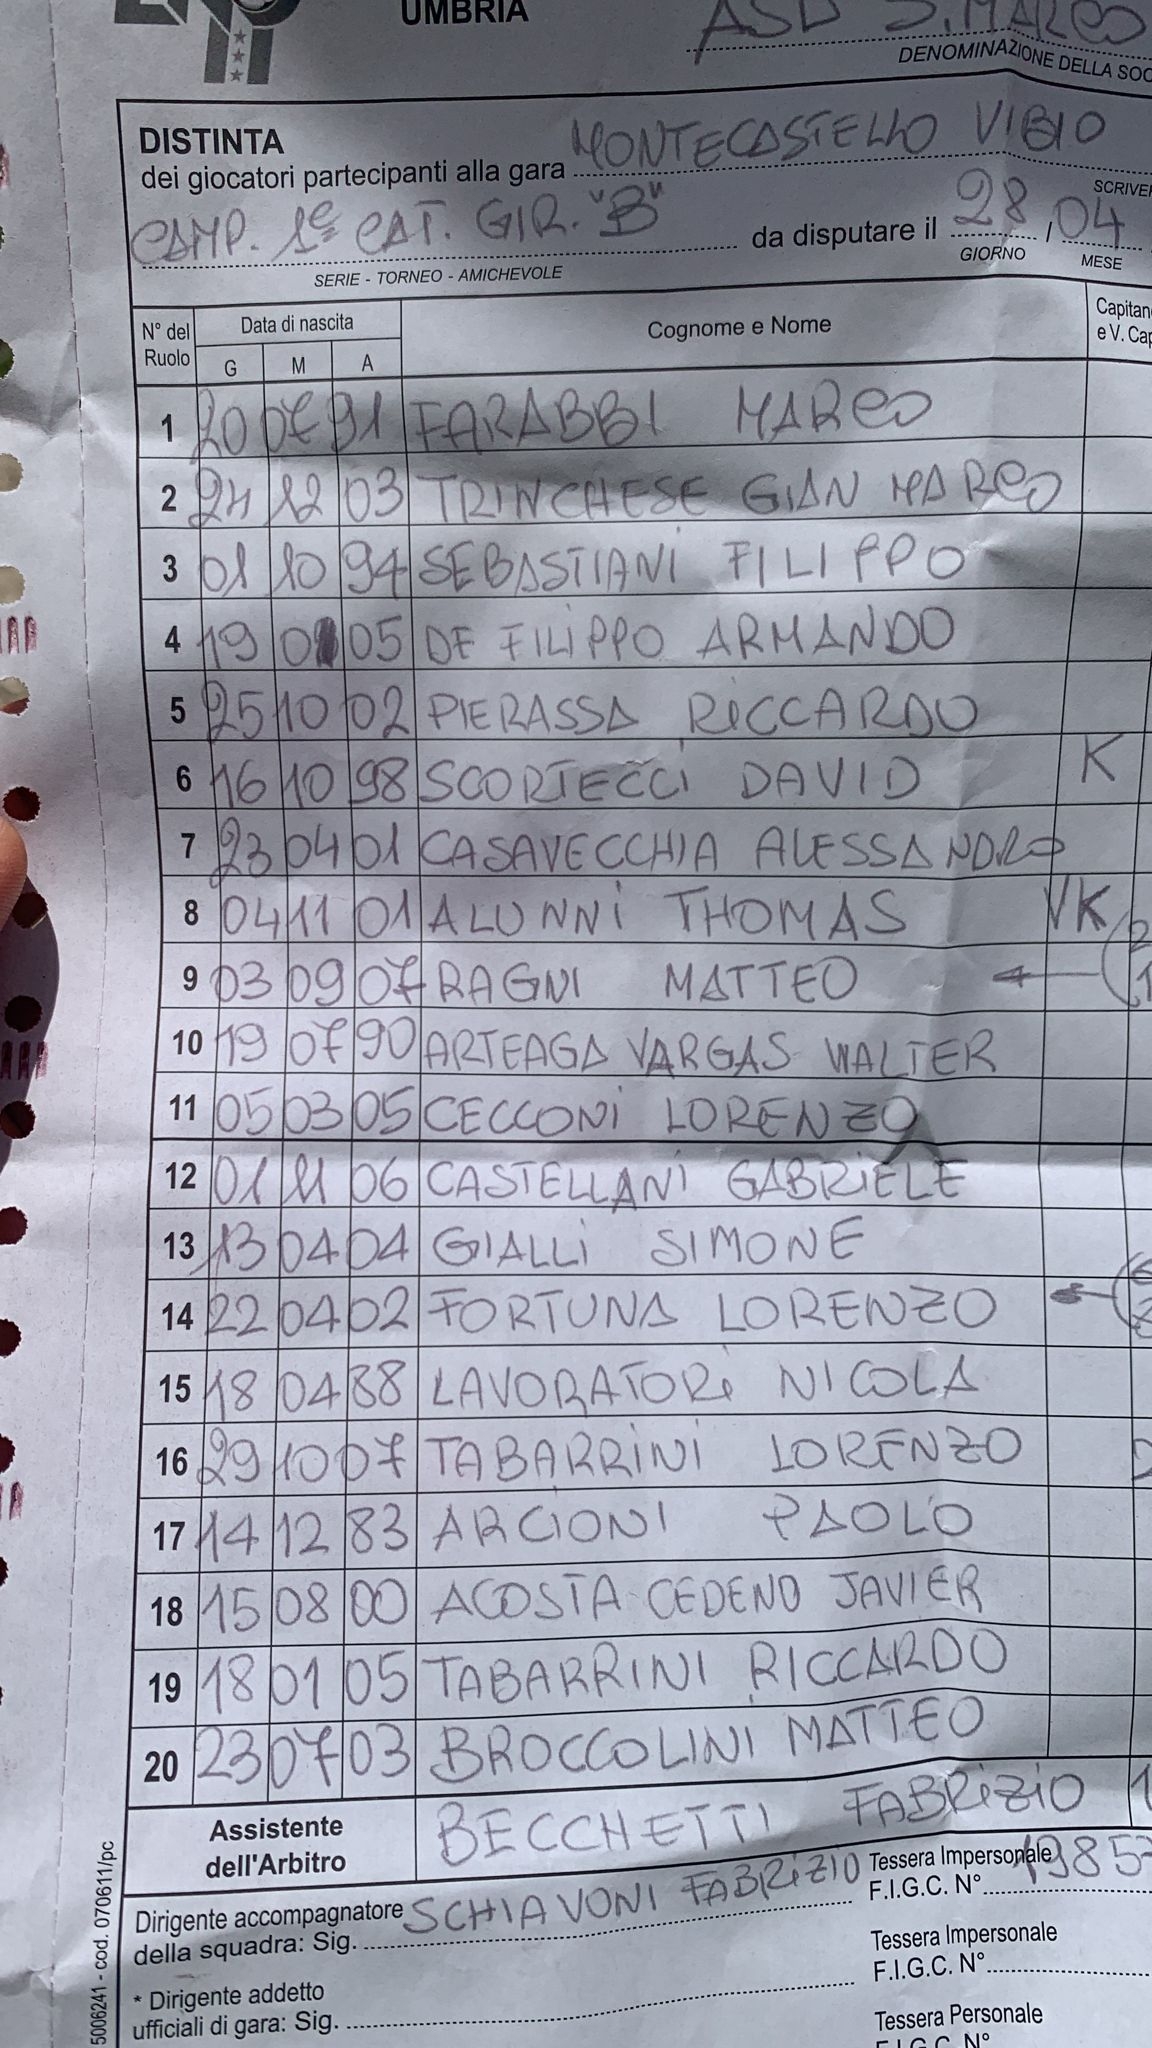 UMBRIA
ASD S. MARCO
DENOMINAZIONE DELLA SOC
DISTINTA
dei giocatori partecipanti alla gara MONTECASTELLO VIBIO
SCRIVER
CAMP. 1e CAT. GIR. "B" da disputare il 28 / 04
SERIE - TORNEO - AMICHEVOLE GIORNO MESE
N° del Ruolo Data di nascita Cognome e Nome Capitan e V. Cap
G M A
1 20 07 91 FARABBI MARCO
2 24 12 03 TRINCHESE GIAN MARCO
3 01 10 94 SEBASTIANI FILIPPO
4 19 05 DE FILIPPO ARMANDO
5 25 10 02 PIERASSA RICCARDO
6 16 10 98 SCORTECCI DAVID K
7 23 04 01 CASAVECCHIA ALESSANDRO
8 04 11 01 ALUNNI THOMAS VK
9 03 09 07 RAGNI MATTEO
10 19 07 90 ARTEAGA VARGAS WALTER
11 05 03 05 CECCONI LORENZO
12 01 11 06 CASTELLANI GABRIELE
13 13 04 04 GIALLI SIMONE
14 22 04 02 FORTUNA LORENZO
15 18 04 88 LAVORATORI NICOLA
16 29 10 07 TABARRINI LORENZO
17 14 12 83 ARCIONI PAOLO
18 15 08 00 ACOSTA CEDENO JAVIER
19 18 01 05 TABARRINI RICCARDO
20 23 07 03 BROCCOLINI MATTEO
Assistente dell'Arbitro BECCHETTI FABRIZIO
Dirigente accompagnatore SCHIAVONI FABRIZIO Tessera Impersonale
della squadra: Sig. F.I.G.C. N° 1985
Tessera Impersonale
F.I.G.C. N°
* Dirigente addetto
ufficiali di gara: Sig.
Tessera Personale
F.I.G.C. N°
5006241 - cod. 070611/pc